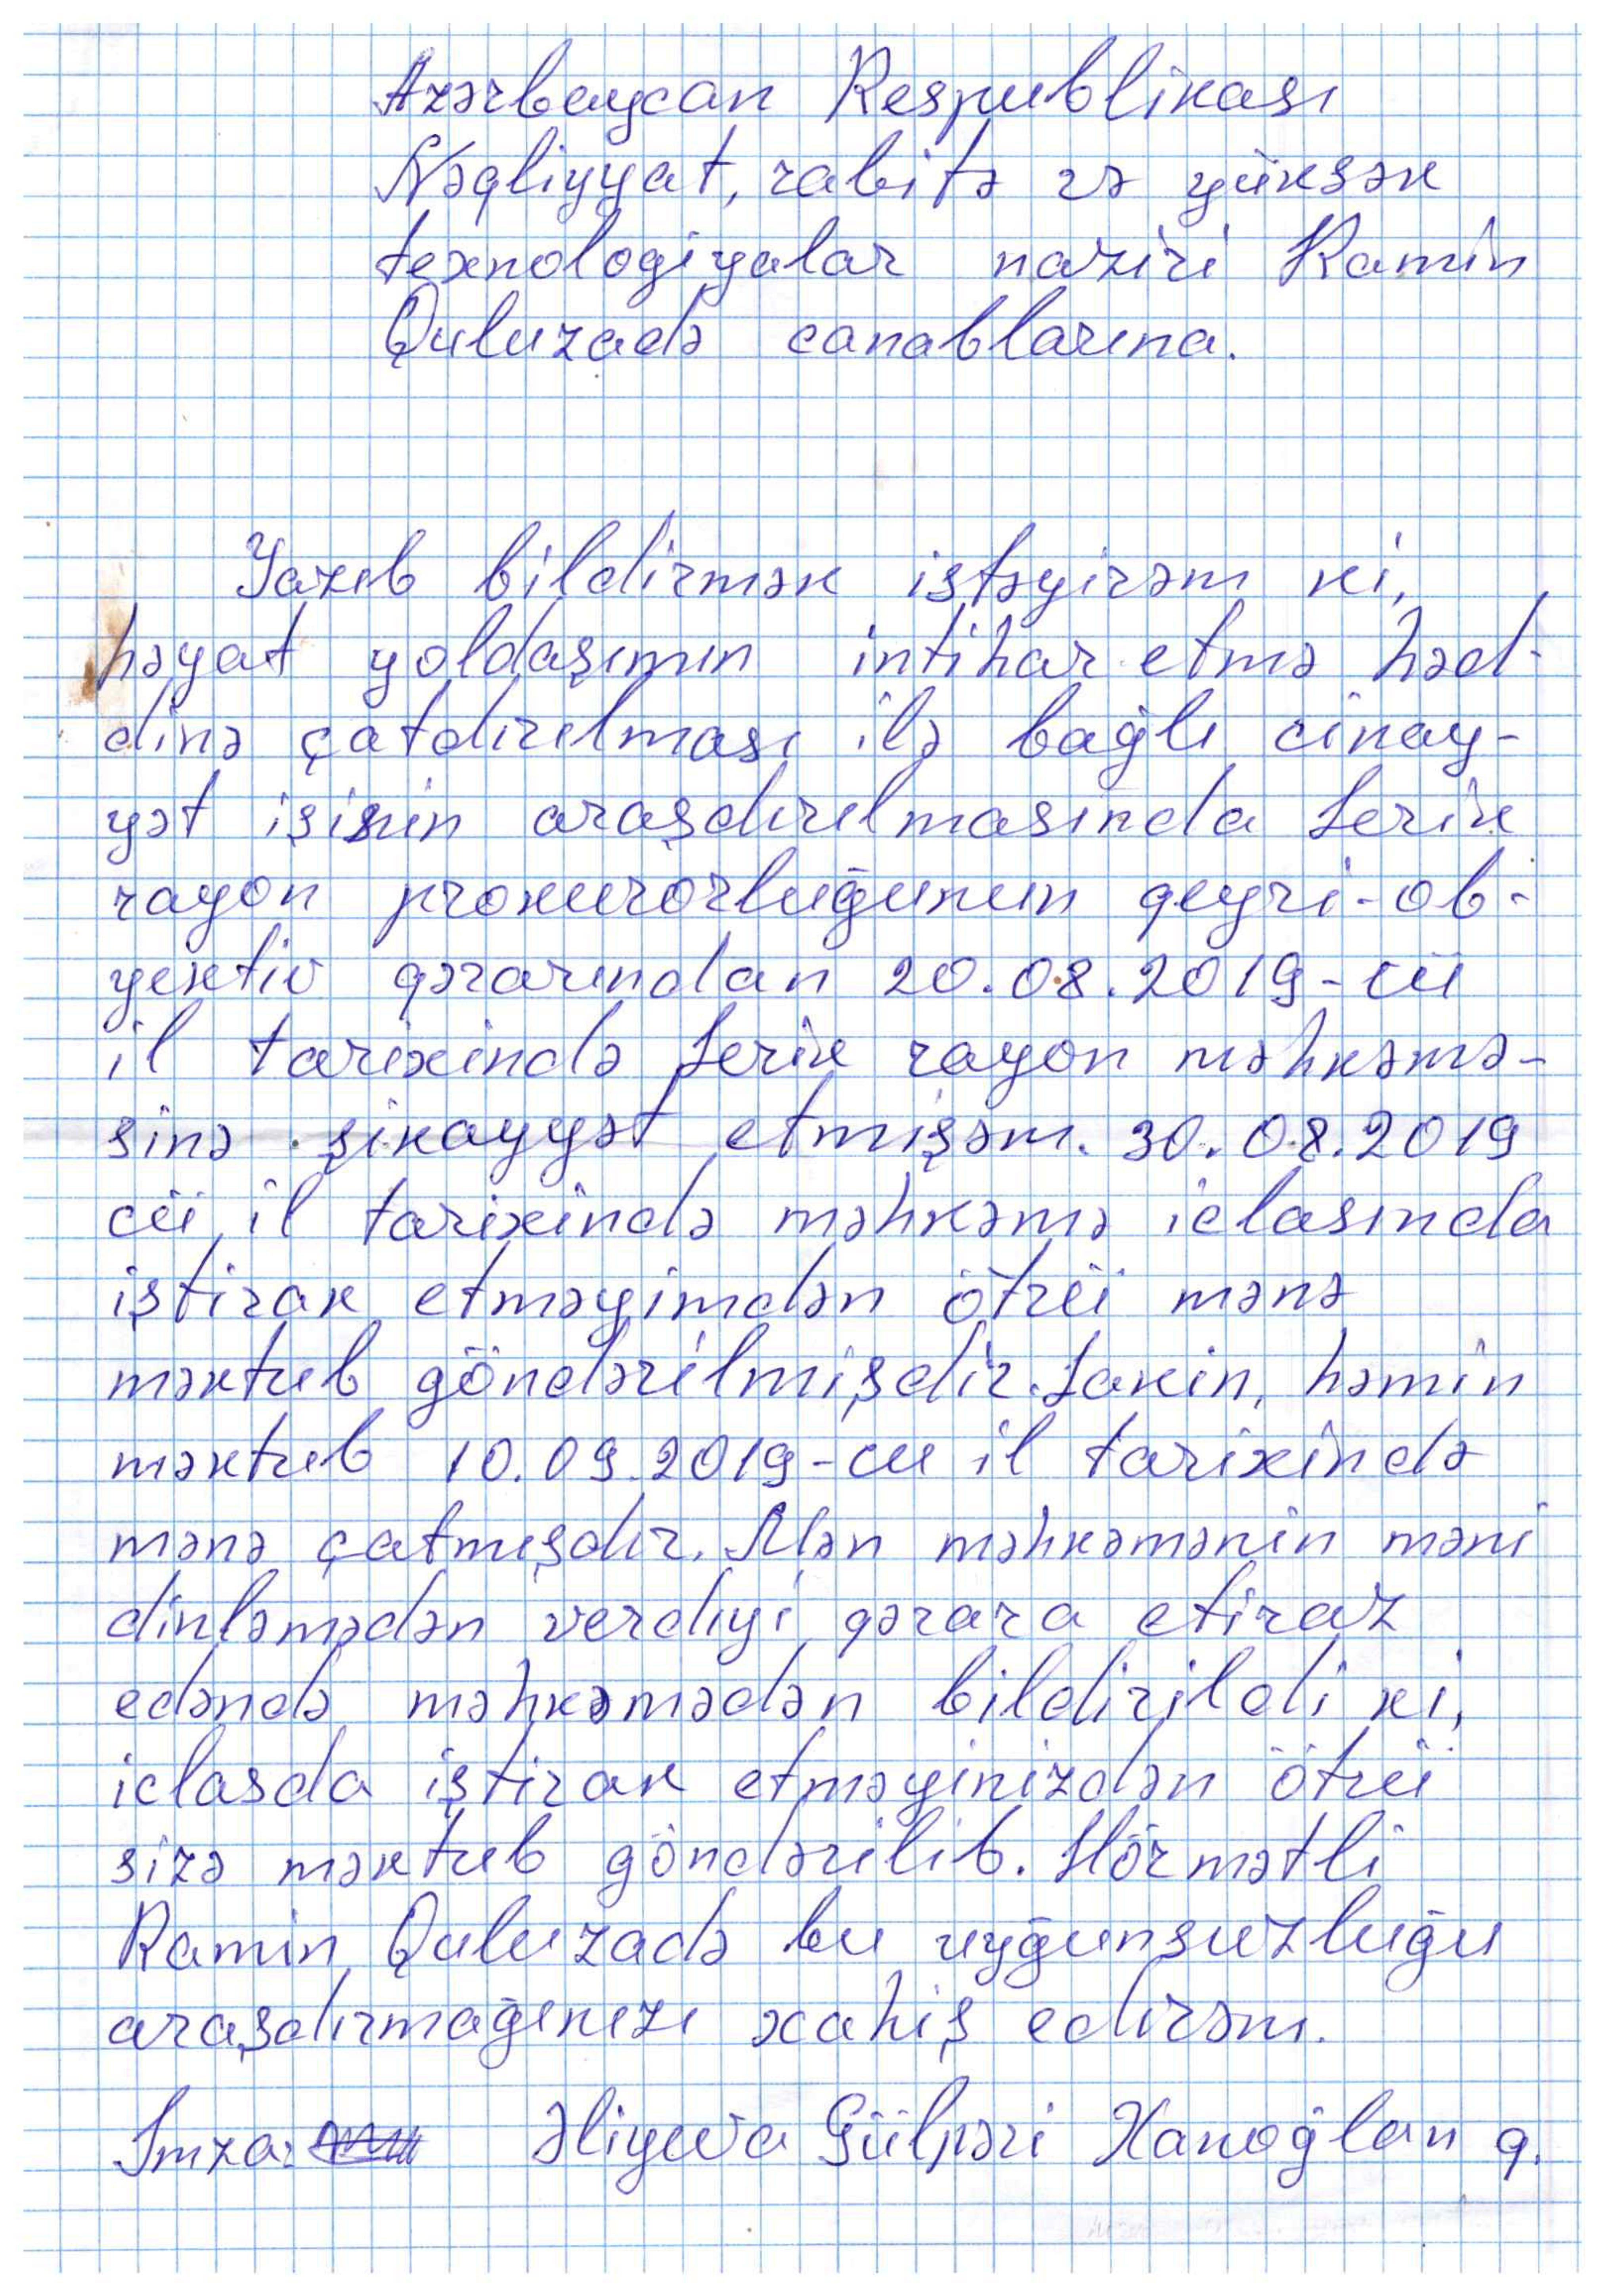 Azərbaycan Respublikası
Nəqliyyat, rabitə və yüksək
texnologiyalar naziri Ramin
Quluzadə canablarına.
Yazıb bildirmək istəyirəm ki,
həyat yoldaşımın intihar etmə həd-
dinə çatdırılması ilə bağlı cinay-
yət işinin araşdırılmasında Lerik
rayon prokurorluğunun qeyri-ob-
yektiv qərarından 20.08.2019-cü
il tarixində Lerik rayon məhkəmə-
sinə şikayyət etmişəm. 30.08.2019
cü il tarixində məhkəmə iclasında
iştirak etməyimdən ötrü mənə
məktub göndərilmişdir. Lakin, həmin
məktub 10.09.2019-cu il tarixində
mənə çatmışdır. Mən məhkəmənin məni
dinləmədən verdiyi qərara etiraz
edəndə məhkəmədən bildirildi ki,
iclasda iştirak etməyinizdən ötrü
sizə məktub göndərilib. Hörmətli
Ramin Quluzadə bu uyğunsuzluğu
araşdırmağınızı xahiş edirəm.
İmza: Əliyeva Gülpəri Xanoğlan q.